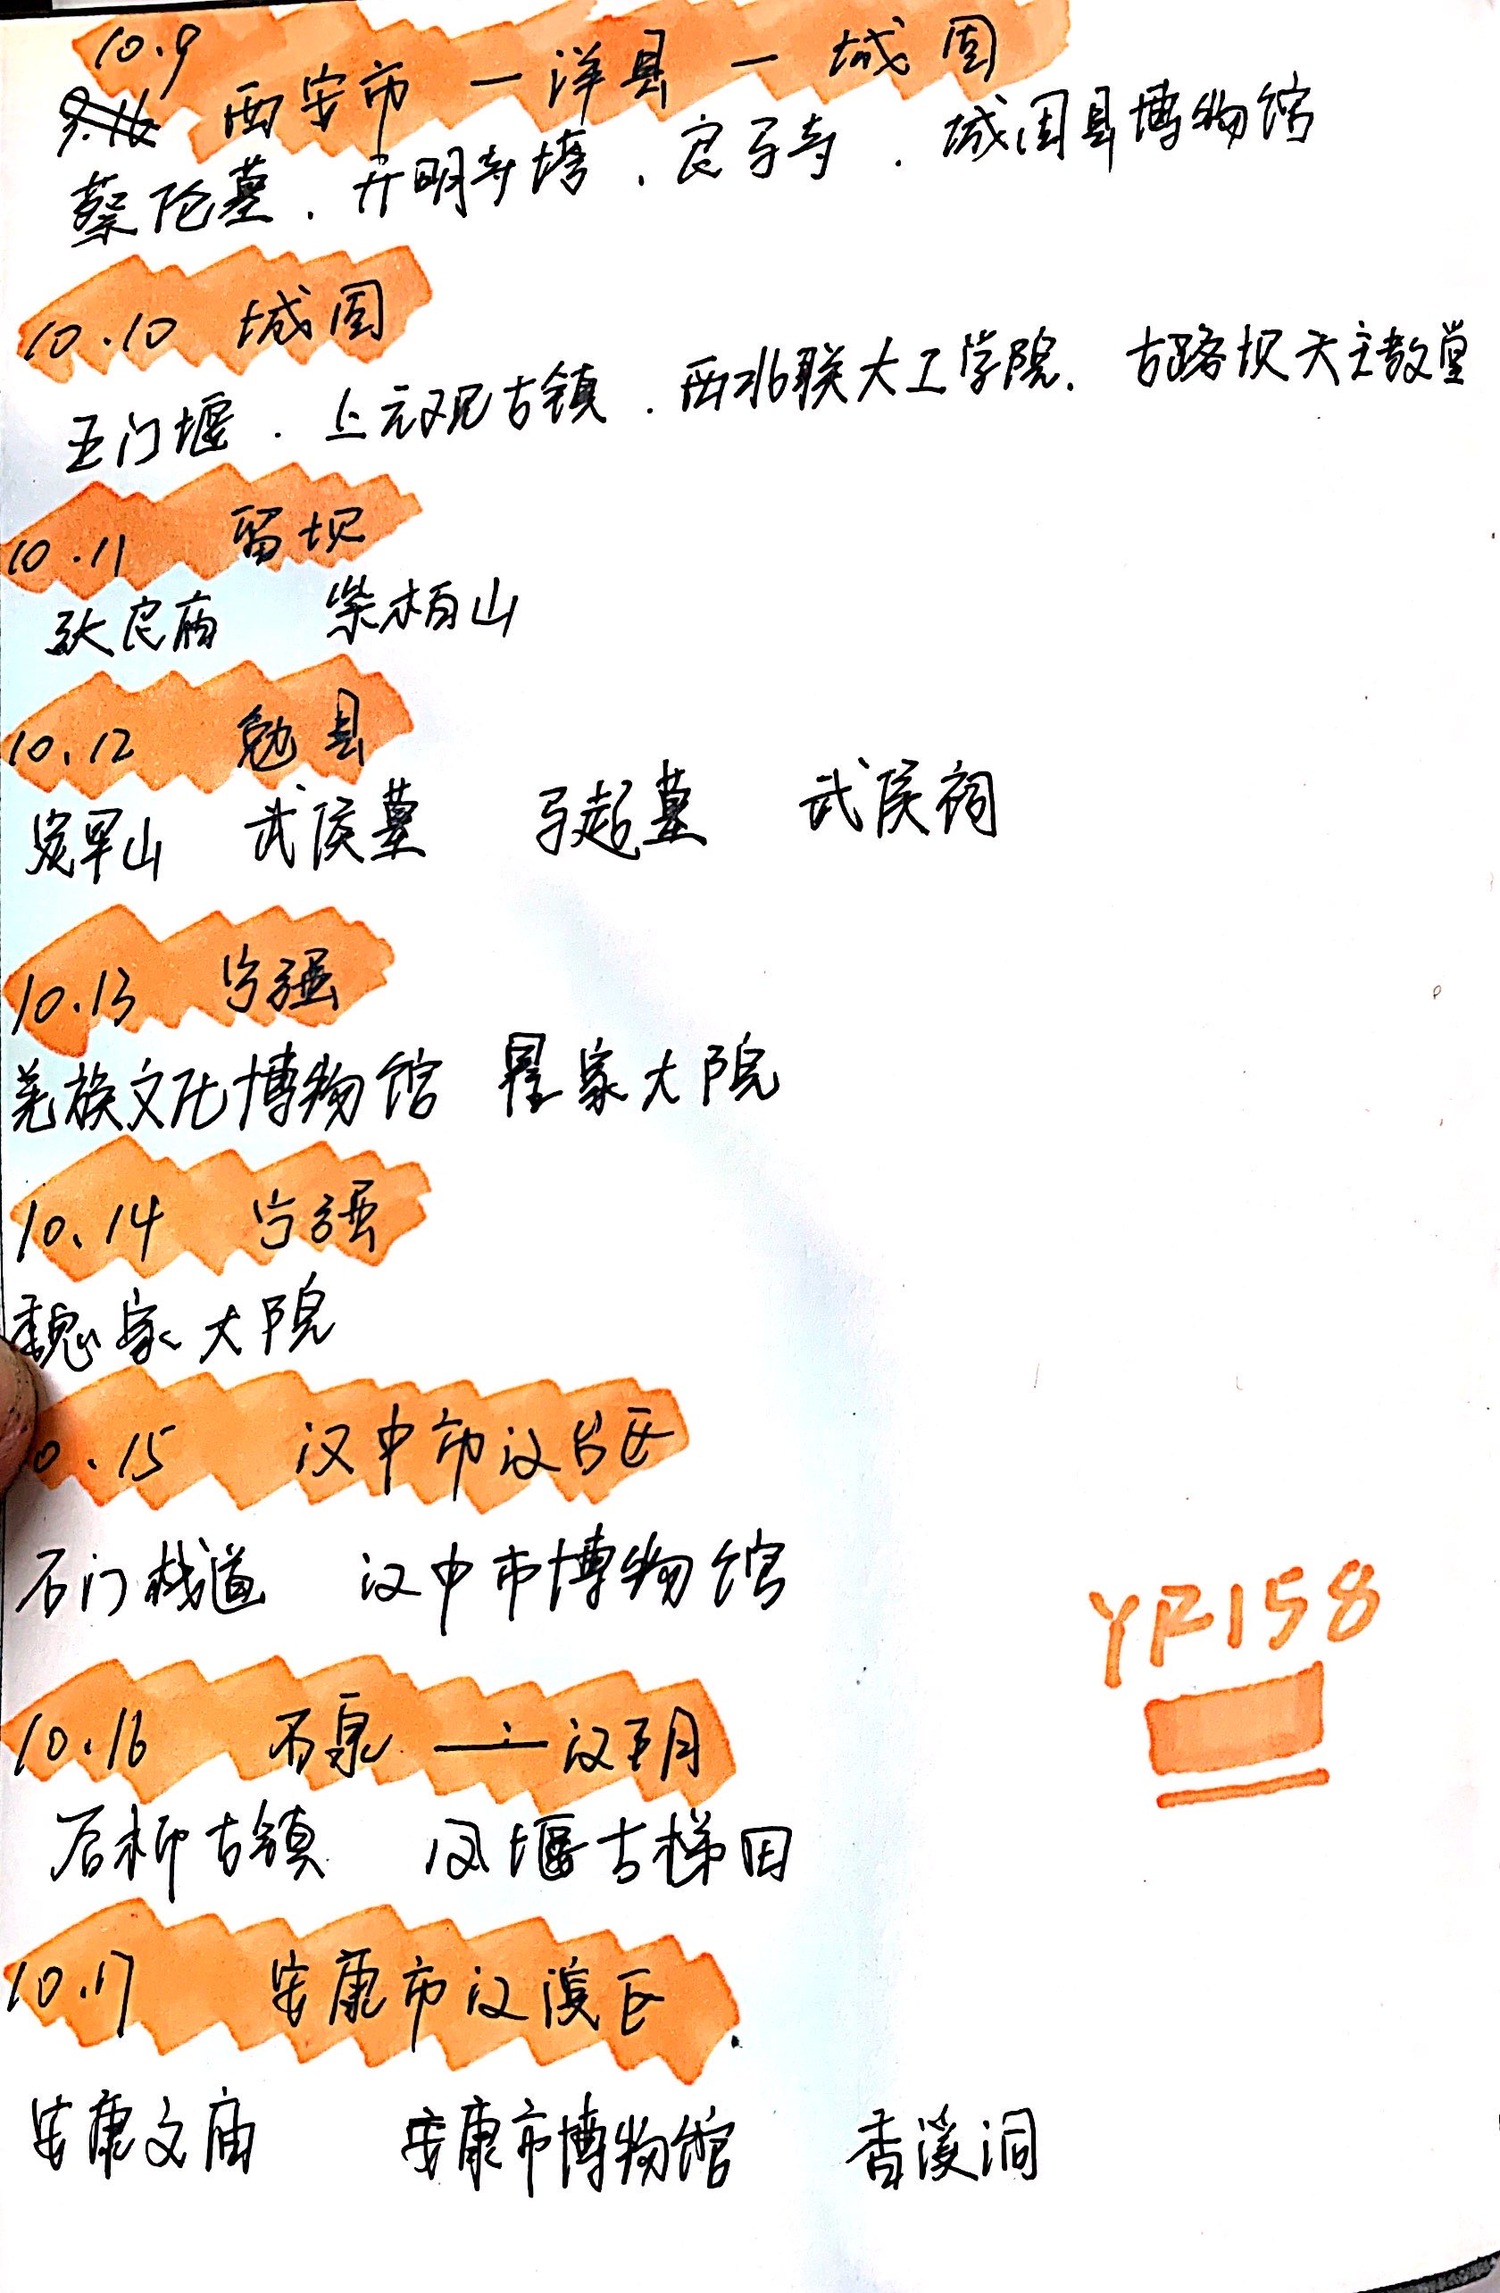 10.9
西安市 — 洋县 — 城固
蔡伦墓、开明寺塔、良马寺、城固县博物馆
10.10 城固
五门堰、上元观古镇、西北联大工学院、古路坝天主教堂
10.11 留坝
张良庙 紫柏山
10.12 勉县
定军山 武侯墓 马超墓 武侯祠
10.13 宁强
羌族文化博物馆 瞿家大院
10.14 宁强
魏家大院
0.15 汉中市汉台区
石门栈道 汉中市博物馆
YR158
10.16 石泉 — 汉阴
后柳古镇 凤堰古梯田
10.17 安康市汉滨区
安康文庙 安康市博物馆 香溪洞